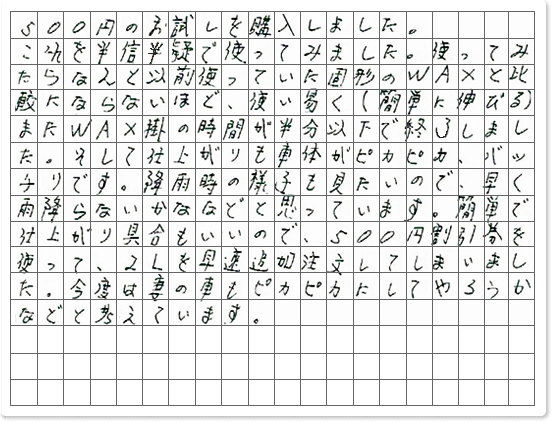 500円のお試しを購入しました。
これを半信半疑で使ってみました。使ってみ
たらなんと以前使っていた固形のWAXと比
較にならないほど、使い易く(簡単に伸びる)
またWAX掛の時間が半分以下で終了しまし
た。そして仕上がりも車体がピカピカ、バッ
チリです。降雨時の様子も見たいので、早く
雨降らないかななどと思っています。簡単で
仕上がり具合もいいので、500円割引券を
使って、2Lを早速追加注文してしまいまし
た。今度は妻の車もピカピカにしてやろうか
などと考えています。